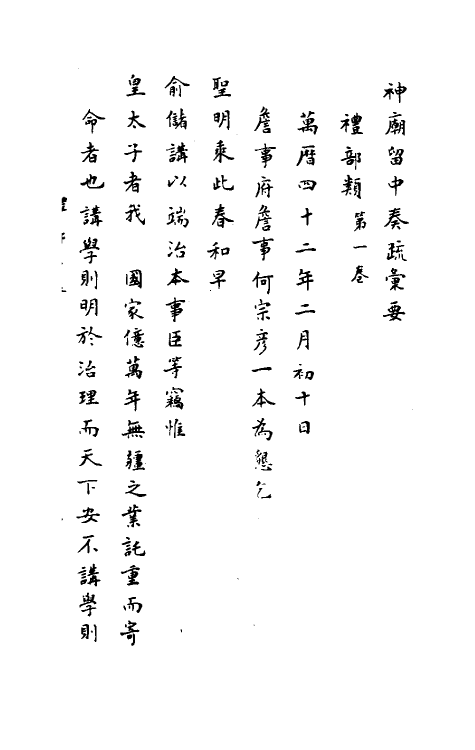 神廟留中奏疏彙要
禮部類 第一卷
萬曆四十二年二月初十日
詹事府詹事何宗彥一本為懇乞
聖明乘此春和早
俞儲講以端治本事臣等竊惟
皇太子者我 國家億萬年無疆之業託重而寄
命者也講學則明於治理而天下安不講學則